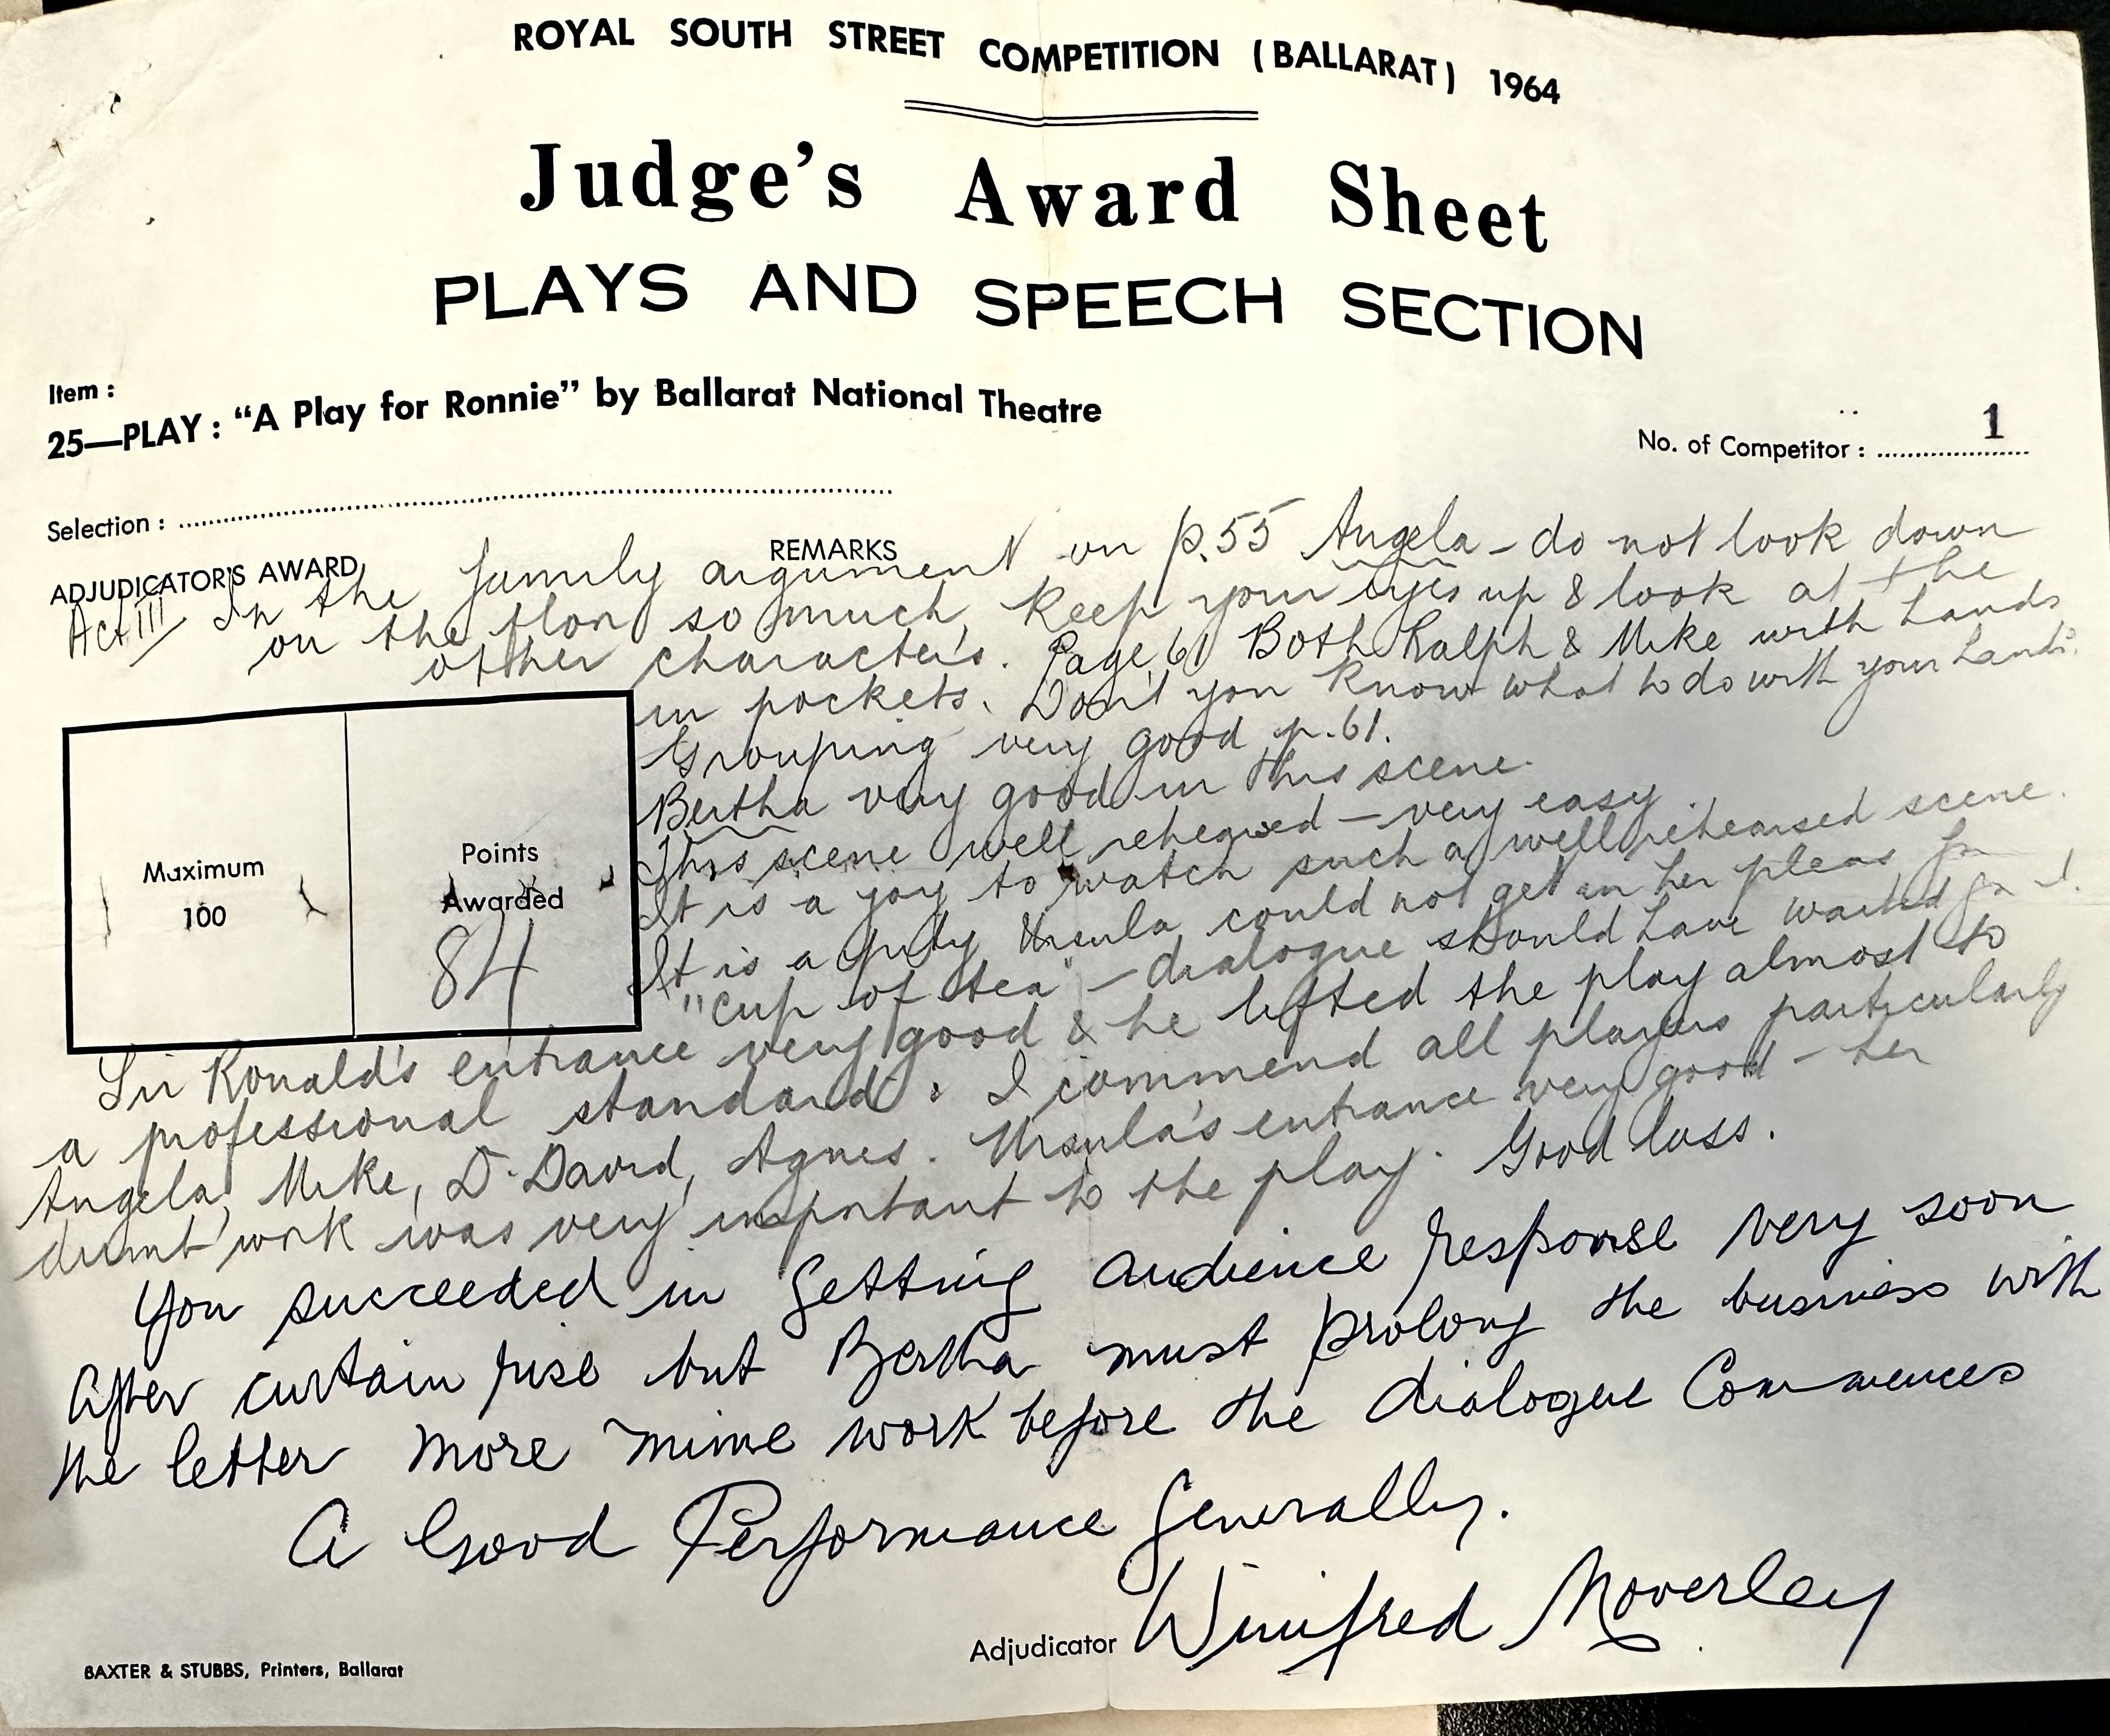 ROYAL SOUTH STREET COMPETITION (BALLARAT) 1964
Judge's Award Sheet
PLAYS AND SPEECH SECTION
Item :
25—PLAY : "A Play for Ronnie" by Ballarat National Theatre
No. of Competitor : 1
Selection :
ADJUDICATOR'S AWARD
REMARKS
Act III In the family argument on p.55 Angela - do not look down
on the floor so much, Keep your eyes up & look at the
other characters. Page 61 Both Ralph & Mike with hands
in pockets. Don't you know what to do with your hands?
Grouping very good p.61.
Bertha very good in this scene.
This scene well rehearsed - very easy.
It is a joy to watch such a well rehearsed scene.
It is a pity Ursula could not get in her pleas for
"cup of tea" - dialogue should have waited for it.
Maximum
100
Points
Awarded
84
Sir Ronald's entrance very good & he lifted the play almost to
a professional standard. I commend all players particularly
Angela, Mike, D. David, Agnes. Ursula's entrance very good - her
work was very important to the play. Good
You succeeded in getting audience response very soon
after curtain rise but Bertha must prolong the business with
the letter more mime work before the dialogue Commences
A Good Performance Generally.
Adjudicator Winifred Moverley
BAXTER & STUBBS, Printers, Ballarat